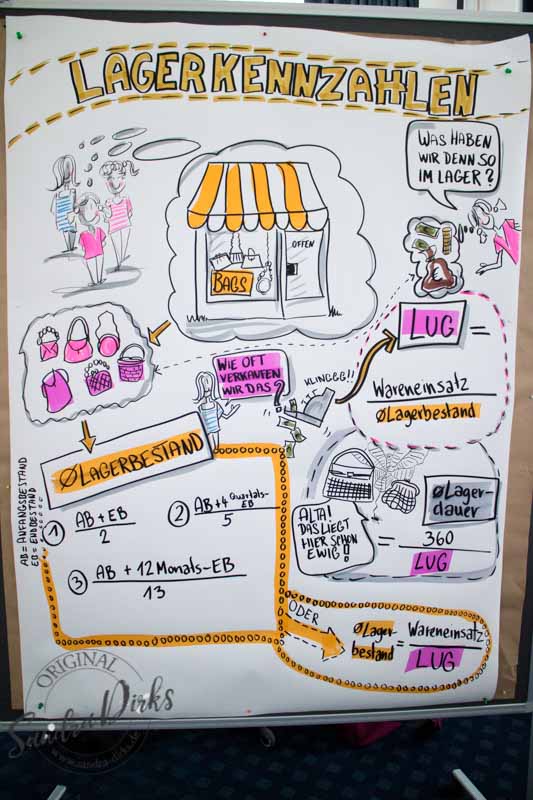 LAGERKENNZAHLEN
WAS HABEN
WIR DENN SO
IM LAGER?
OFFEN
BAGS
LUG =
Wareneinsatz
ØLagerbestand
WIE OFT
VERKAUFEN
WIR DAS?
KLINGGG!!
ØLAGERBESTAND
AB = ANFANGSBESTAND
EB = ENDBESTAND
1 AB+EB
2
2 AB+4 Quartals-
EB
5
3 AB + 12 Monats-EB
13
ALTA!
DAS LIEGT
HIER SCHON
EWIG!
ØLager-
dauer
= 360
LUG
ODER
ØLager-
bestand = Wareneinsatz
LUG
ORIGINAL
Sandra Dirks
www.sandra-dirks.de